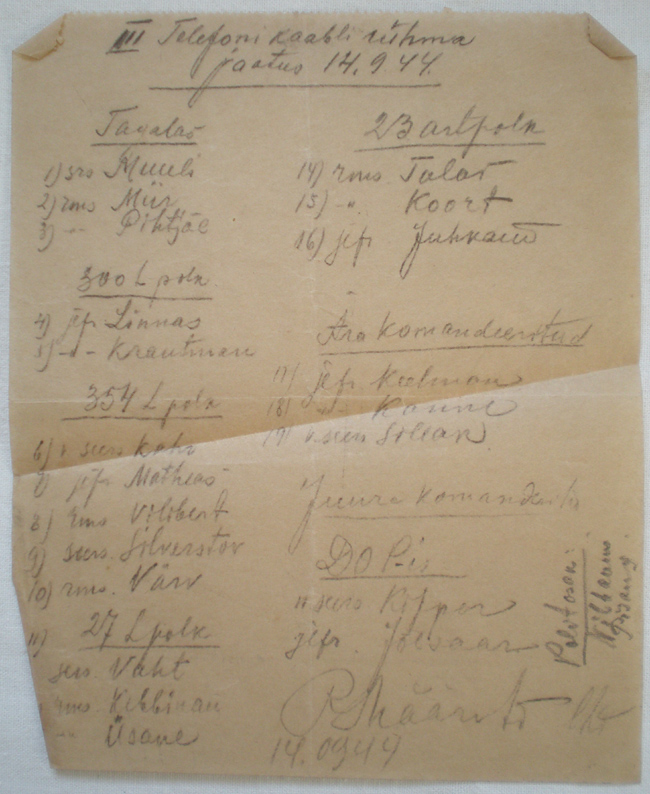 III Telefoni kaabli rühma
jaotus 14.9 44.
Tagalas
1) srs Muuli
2) rms Mür
3) -"- Pihtjäe
300 L polk.
4) jefr Linnas
5) -"- Krautman
354 L polk
6) v seers Kahr
7) jefr Matheas
8) rms Vilibert
9) seers. Silverstov
10) rms. Värv
11) 27 L polk
seers. Vaht
rms. Kibbinan
-"- Üsane
23 art polk
14) rms Talas
15) -"- Koort
16) jefr Juhkam
Ära komandeeritud
17) jefr. Keelman
18) -"- Kanne
19) v. seers Siliean
Juure komandeerit.
DO P-is
v seers Kipper
jefr. Jõesaar
14.0944
Politosak.